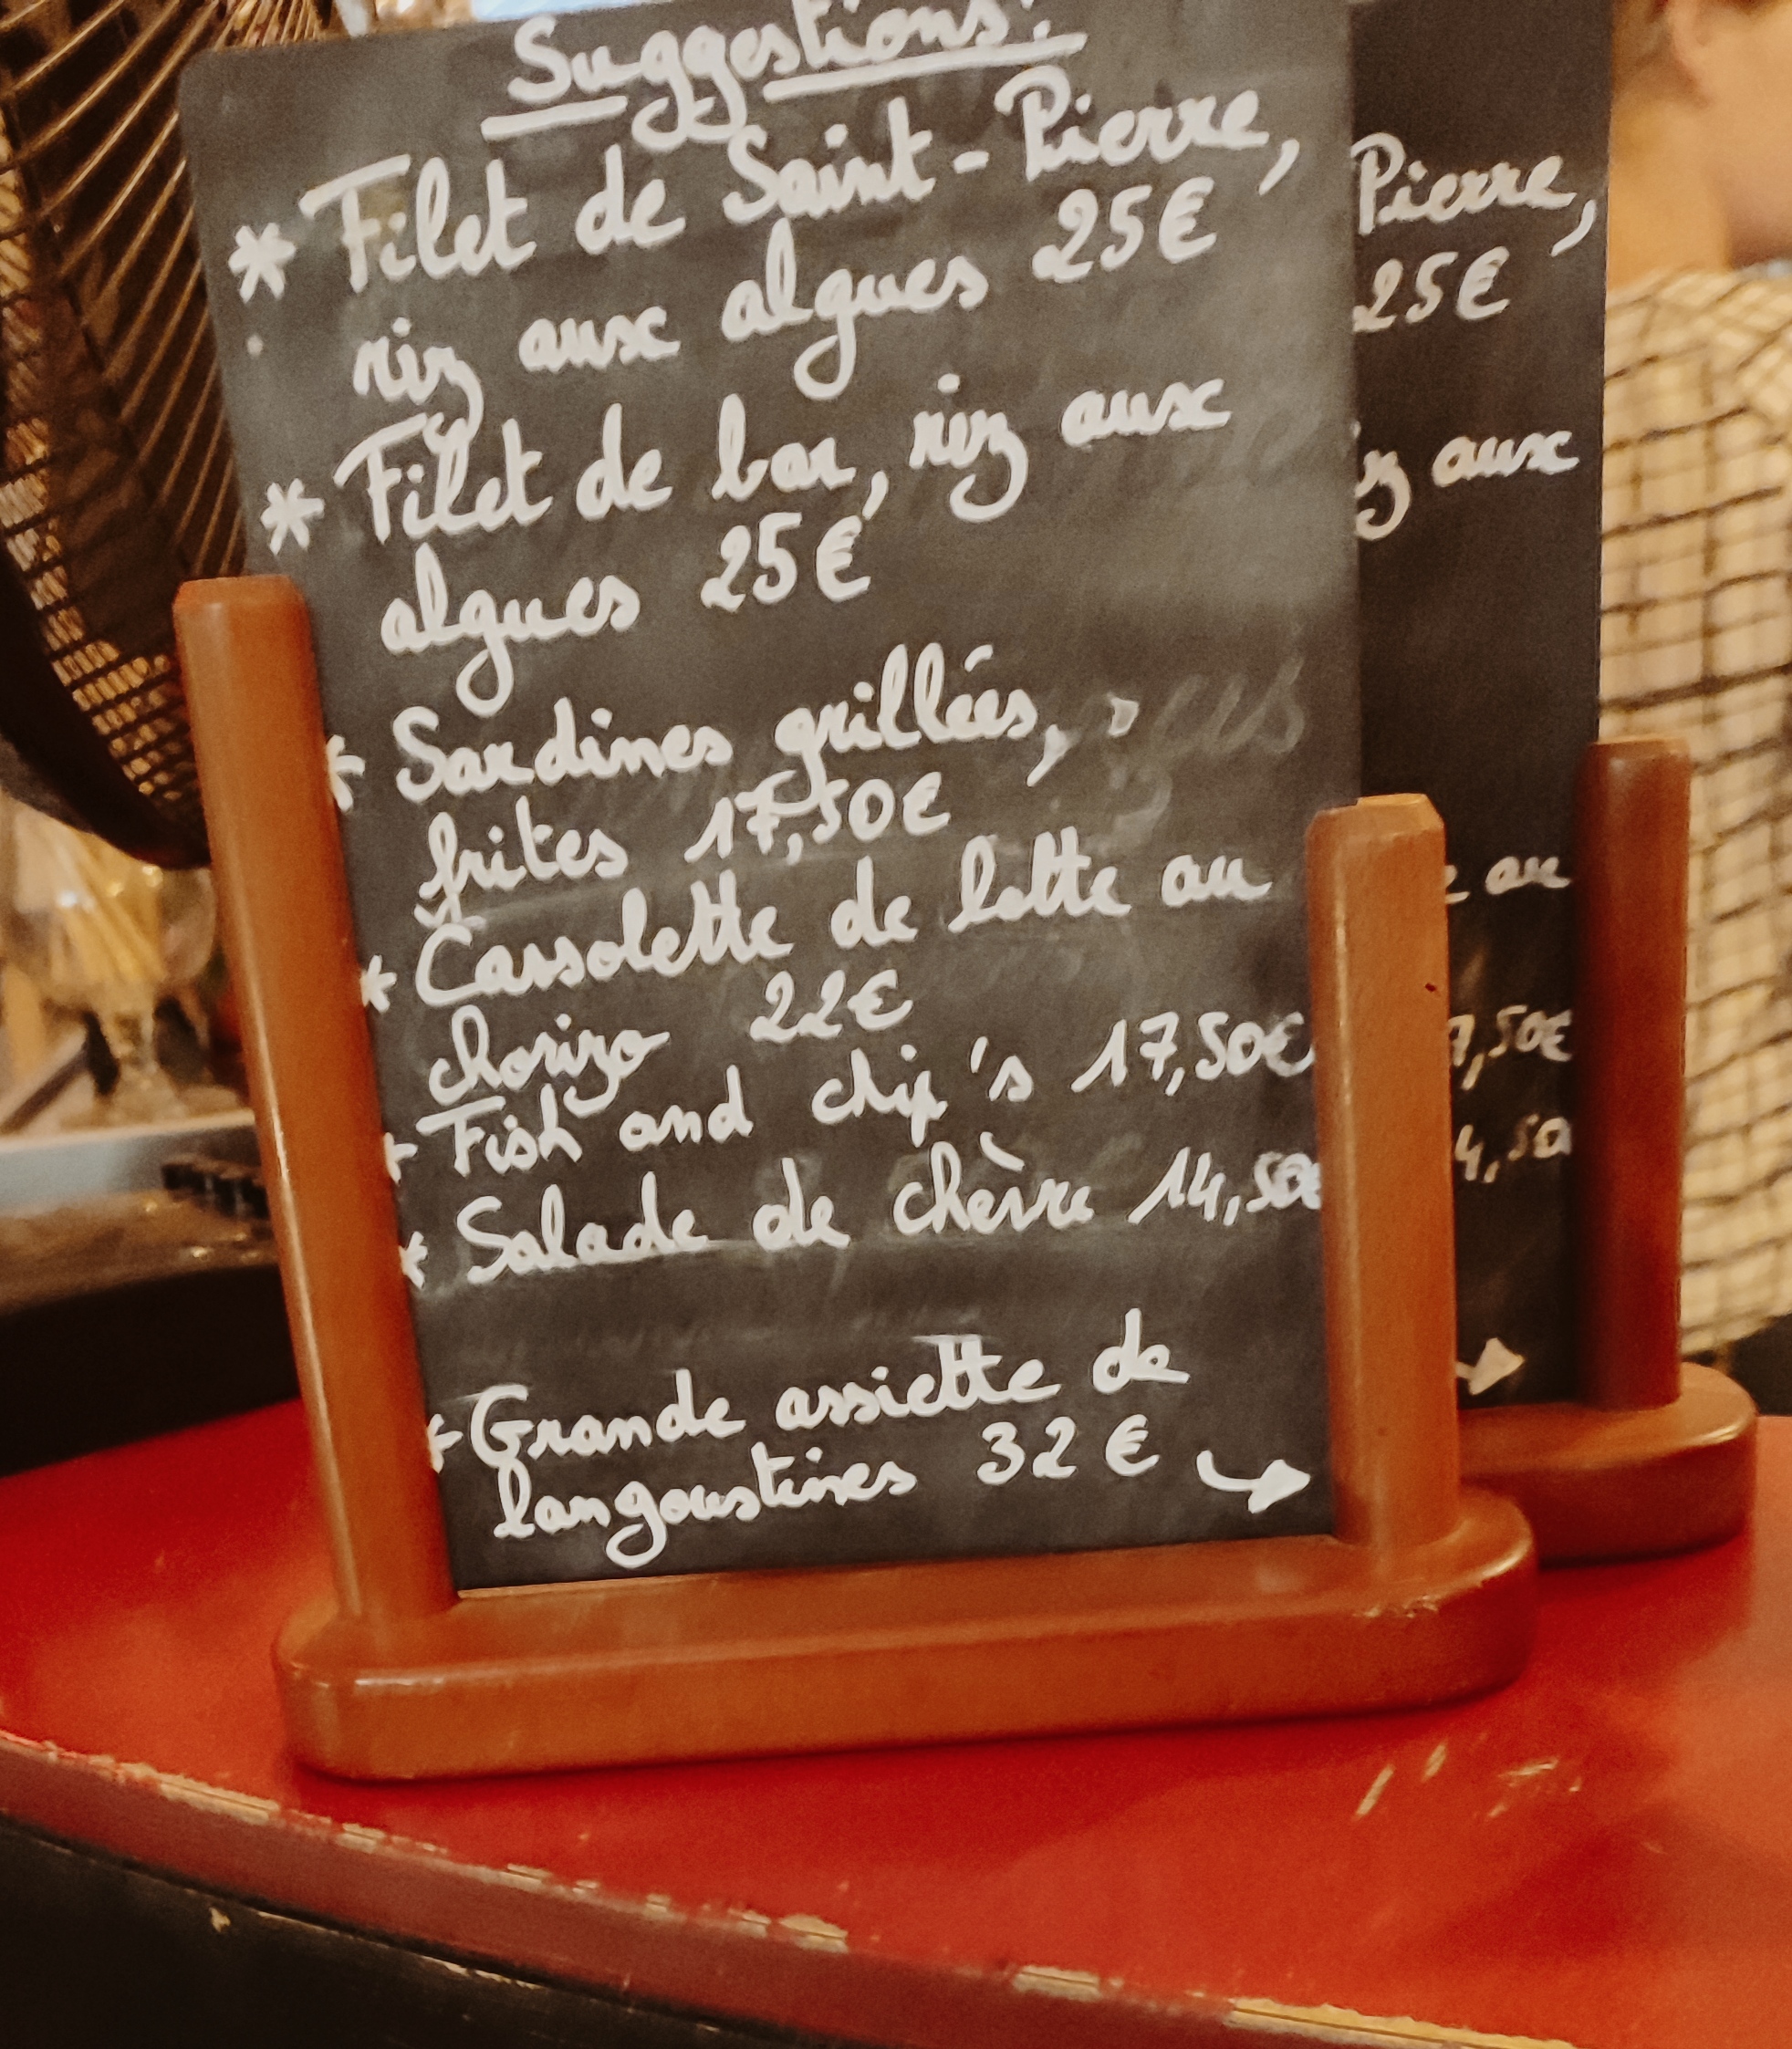 Suggestions:
* Filet de Saint-Pierre,
riz aux algues 25€
* Filet de bar, riz aux
algues 25€
* Sardines grillées,
frites 17,50€
* Cassolette de lotte au
chorizo 22€
* Fish and chip's 17,50€
* Salade de chèvre 14,50€
* Grande assiette de
langoustines 32€ →
Pierre,
25€
aux
au
7,50€
4,50